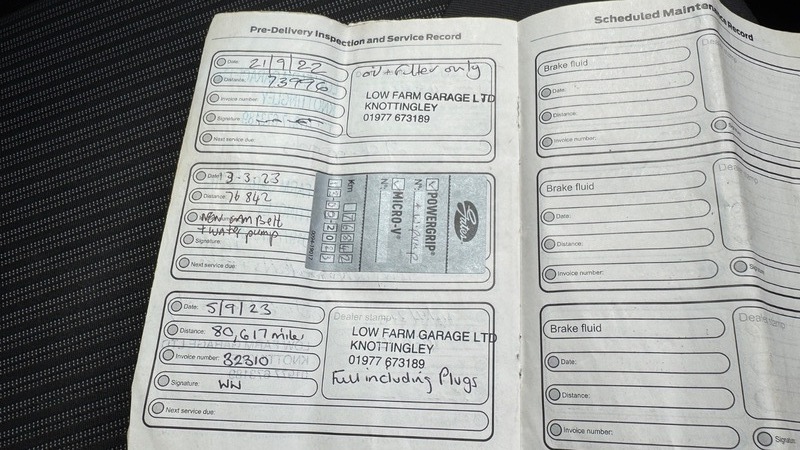 Pre-Delivery Inspection and Service Record
Date: 21/9/22
oil + filter only
Distance: 73996
LOW FARM GARAGE LTD
Invoice number:
KNOTTINGLEY
Signature:
01977 673189
Next service due:
Date: 13-3-23
Distance: 76842
New cam Belt
+ water pump
Signature:
Next service due:
Gates
POWERGRIP®
N°:
MICRO-V®
N°:
Km
Date: 5/9/23
Dealer stamp:
Distance: 80,617 miles
LOW FARM GARAGE LTD
KNOTTINGLEY
Invoice number: 32310
01977 673189
Signature: WW
Full including Plugs
Next service due:
Scheduled Maintenance Record
Brake fluid
Date:
Distance:
Invoice number:
Brake fluid
Date:
Distance:
Invoice number:
Brake fluid
Date:
Distance:
Invoice number: